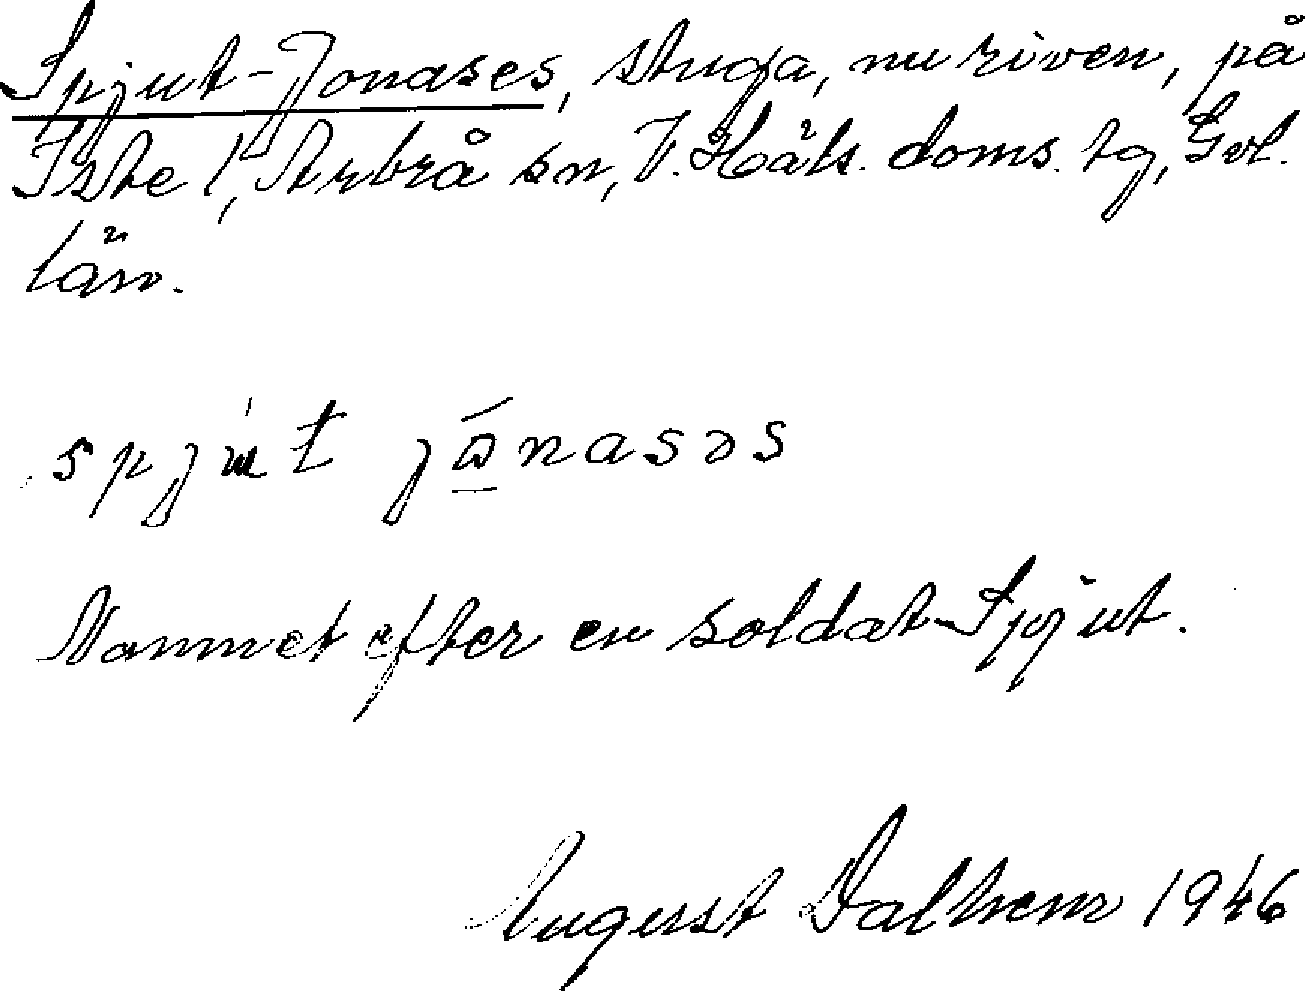 Spjut-Jonases, stuga, nu riven, på
Iste 1, Arbrå sn, V. Häls. doms. tg, Gvl.
län.
spjut jɷ́nasəs
Namnet efter en soldat Spjut.
August Dalhem 1946